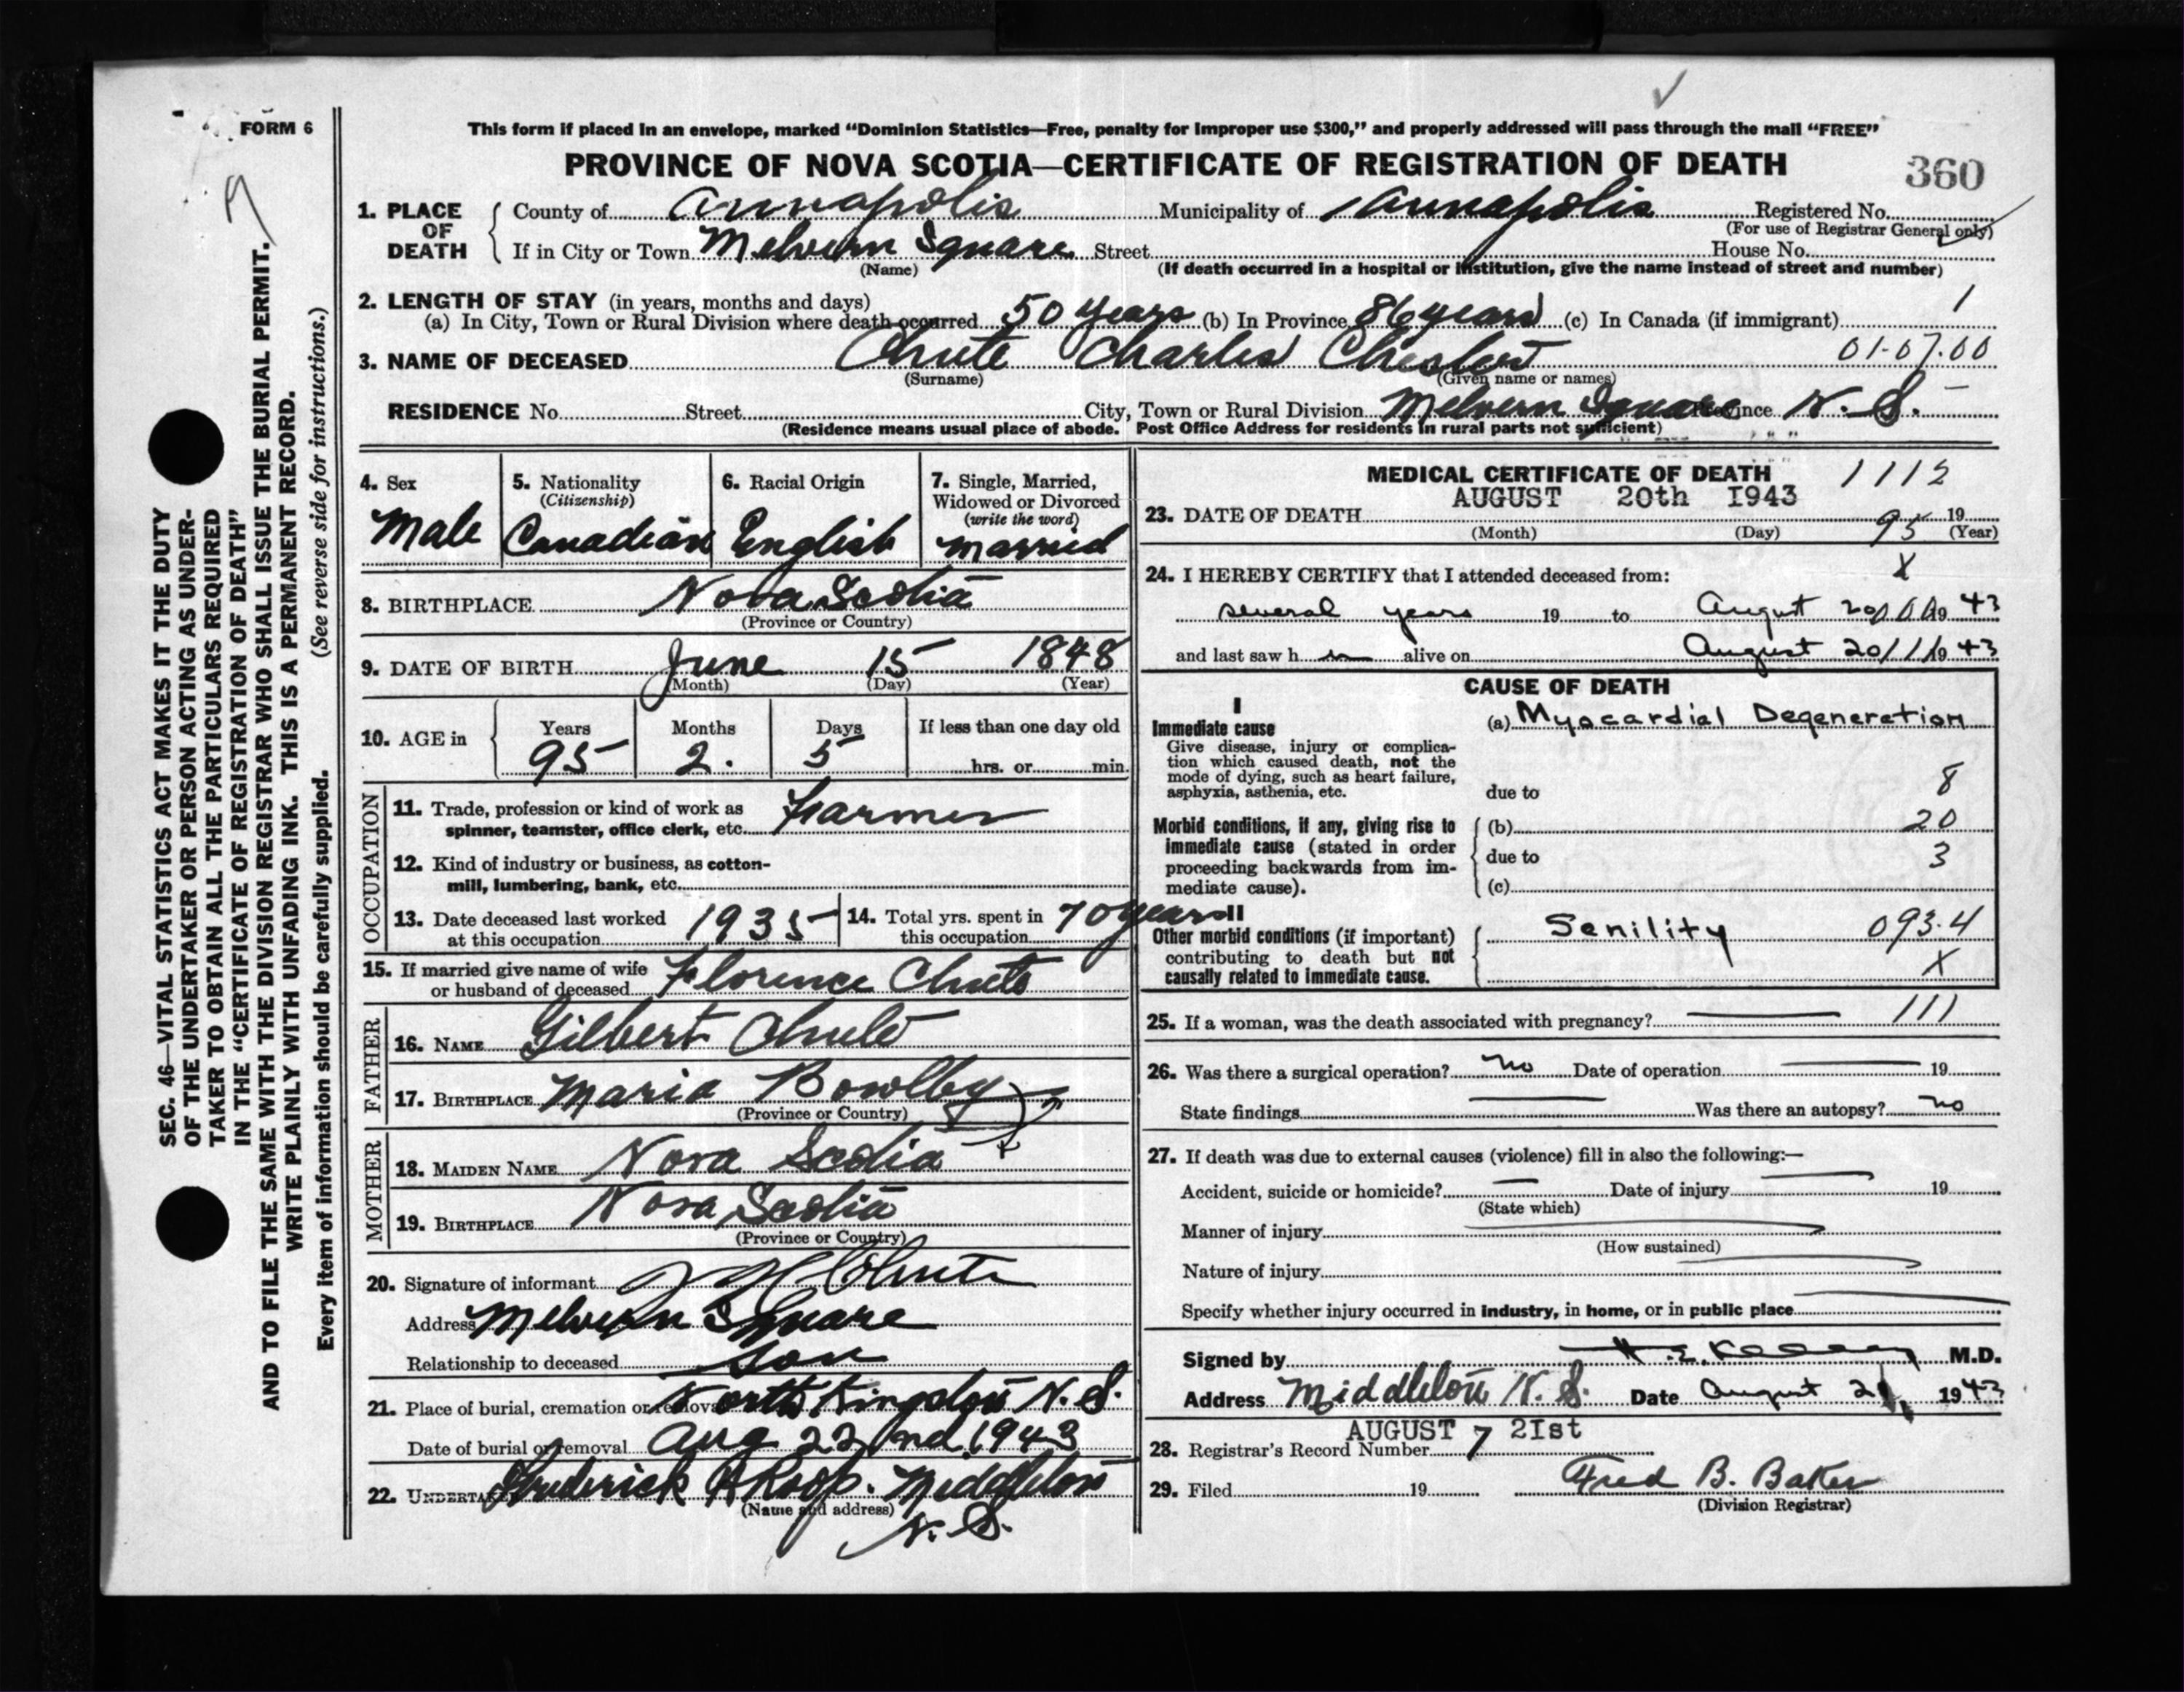 FORM 6
This form if placed in an envelope, marked "Dominion Statistics—Free, penalty for improper use $300," and properly addressed will pass through the mail "FREE"
PROVINCE OF NOVA SCOTIA—CERTIFICATE OF REGISTRATION OF DEATH
360
1. PLACE OF DEATH { County of Annapolis Municipality of Annapolis Registered No.
(For use of Registrar General only)
If in City or Town Melvern Square Street House No.
(Name) (If death occurred in a hospital or institution, give the name instead of street and number)
2. LENGTH OF STAY (in years, months and days) 1
(a) In City, Town or Rural Division where death occurred 50 years (b) In Province 86 years (c) In Canada (if immigrant)
3. NAME OF DECEASED Chute Charles 01-07.00
(Surname) (Given name or names)
RESIDENCE No. Street City, Town or Rural Division Melvern Square Province N. S.
(Residence means usual place of abode. Post Office Address for residents in rural parts not sufficient)
4. Sex Male
5. Nationality (Citizenship) Canadian
6. Racial Origin English
7. Single, Married, Widowed or Divorced (write the word) Married
8. BIRTHPLACE Nova Scotia
(Province or Country)
9. DATE OF BIRTH June 15 1848
(Month) (Day) (Year)
10. AGE in { Years Months Days If less than one day old
95 2. 5 hrs. or min.
OCCUPATION
11. Trade, profession or kind of work as
spinner, teamster, office clerk, etc. Farmer
12. Kind of industry or business, as cotton-
mill, lumbering, bank, etc.
13. Date deceased last worked
at this occupation 1935
14. Total yrs. spent in
this occupation 70 years
15. If married give name of wife
or husband of deceased Florence Chute
FATHER
16. NAME Gilbert Chute
17. BIRTHPLACE Maria Bowlby
(Province or Country)
MOTHER
18. MAIDEN NAME Nova Scotia
19. BIRTHPLACE Nova Scotia
(Province or Country)
20. Signature of informant Chute
Address Melvern Square
Relationship to deceased Son
21. Place of burial, cremation or removal North Kingston N. S.
Date of burial or removal Aug 22nd 1943
22. UNDERTAKER Frederick A Roop. Middleton
(Name and address)
N. S.
MEDICAL CERTIFICATE OF DEATH 1112
AUGUST 20th I943
23. DATE OF DEATH 95 19
(Month) (Day) (Year)
24. I HEREBY CERTIFY that I attended deceased from: X
several years 19 to August 20 19 43
and last saw h alive on August 20 19 43
CAUSE OF DEATH
I
Immediate cause (a) Myocardial Degeneration
Give disease, injury or complica-
tion which caused death, not the
mode of dying, such as heart failure,
asphyxia, asthenia, etc. due to 8
Morbid conditions, if any, giving rise to (b) 20
immediate cause (stated in order
proceeding backwards from im- due to 3
mediate cause). (c)
II
Other morbid conditions (if important) Senility 093.4
contributing to death but not
causally related to immediate cause. X
25. If a woman, was the death associated with pregnancy? 111
26. Was there a surgical operation? No Date of operation 19
State findings Was there an autopsy? No
27. If death was due to external causes (violence) fill in also the following:—
Accident, suicide or homicide? Date of injury 19
(State which)
Manner of injury
(How sustained)
Nature of injury
Specify whether injury occurred in industry, in home, or in public place
Signed by M.D.
Address Middleton N. S. Date August 21, 1943
AUGUST 2Ist
28. Registrar's Record Number 7
29. Filed 19 Fred B. Baker
(Division Registrar)
SEC. 46—VITAL STATISTICS ACT MAKES IT THE DUTY
OF THE UNDERTAKER OR PERSON ACTING AS UNDER-
TAKER TO OBTAIN ALL THE PARTICULARS REQUIRED
IN THE "CERTIFICATE OF REGISTRATION OF DEATH"
AND TO FILE THE SAME WITH THE DIVISION REGISTRAR WHO SHALL ISSUE THE BURIAL PERMIT.
WRITE PLAINLY WITH UNFADING INK. THIS IS A PERMANENT RECORD.
Every item of information should be carefully supplied. (See reverse side for instructions.)